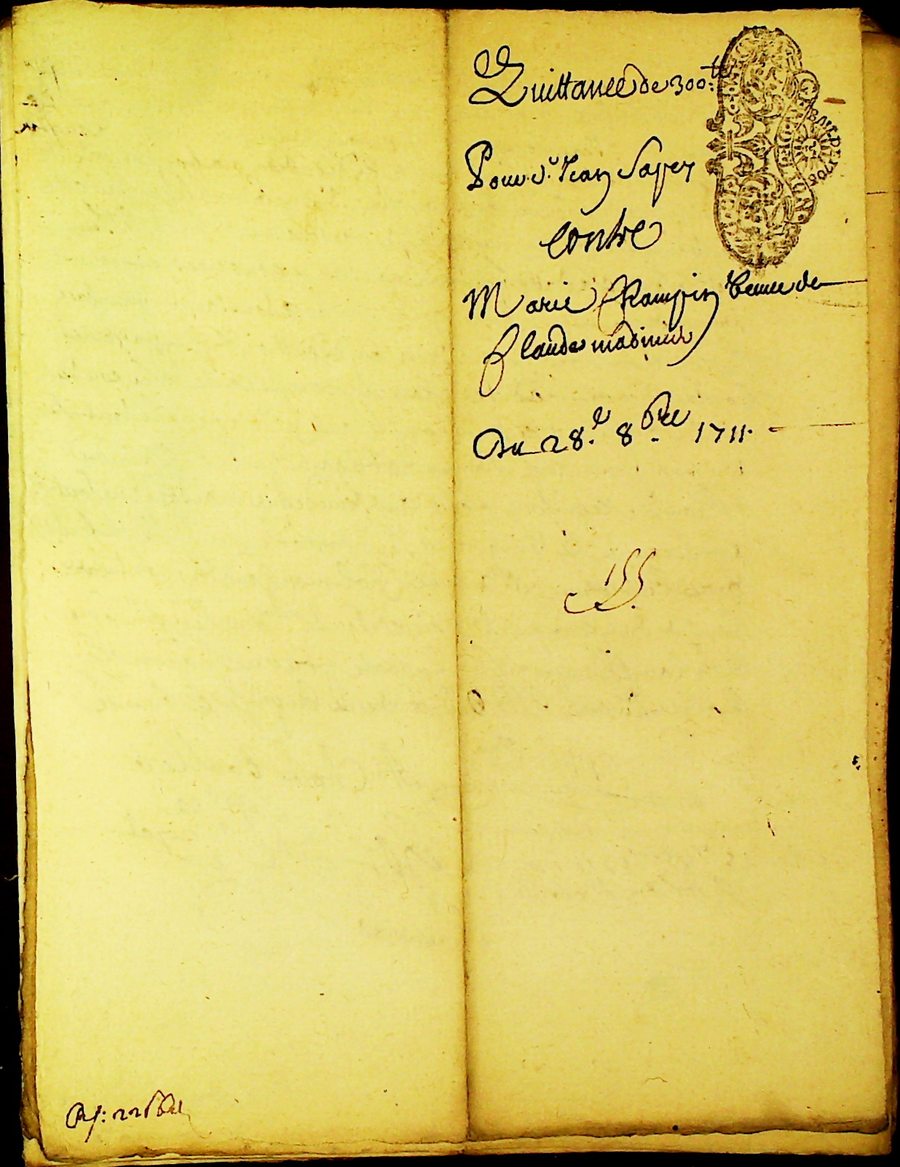 Quittance de 300.tt
Pour Sr. Jean
Contre
Marie Rampin veuve de
Claude madinier
Du 28.e 8.bre 1711.